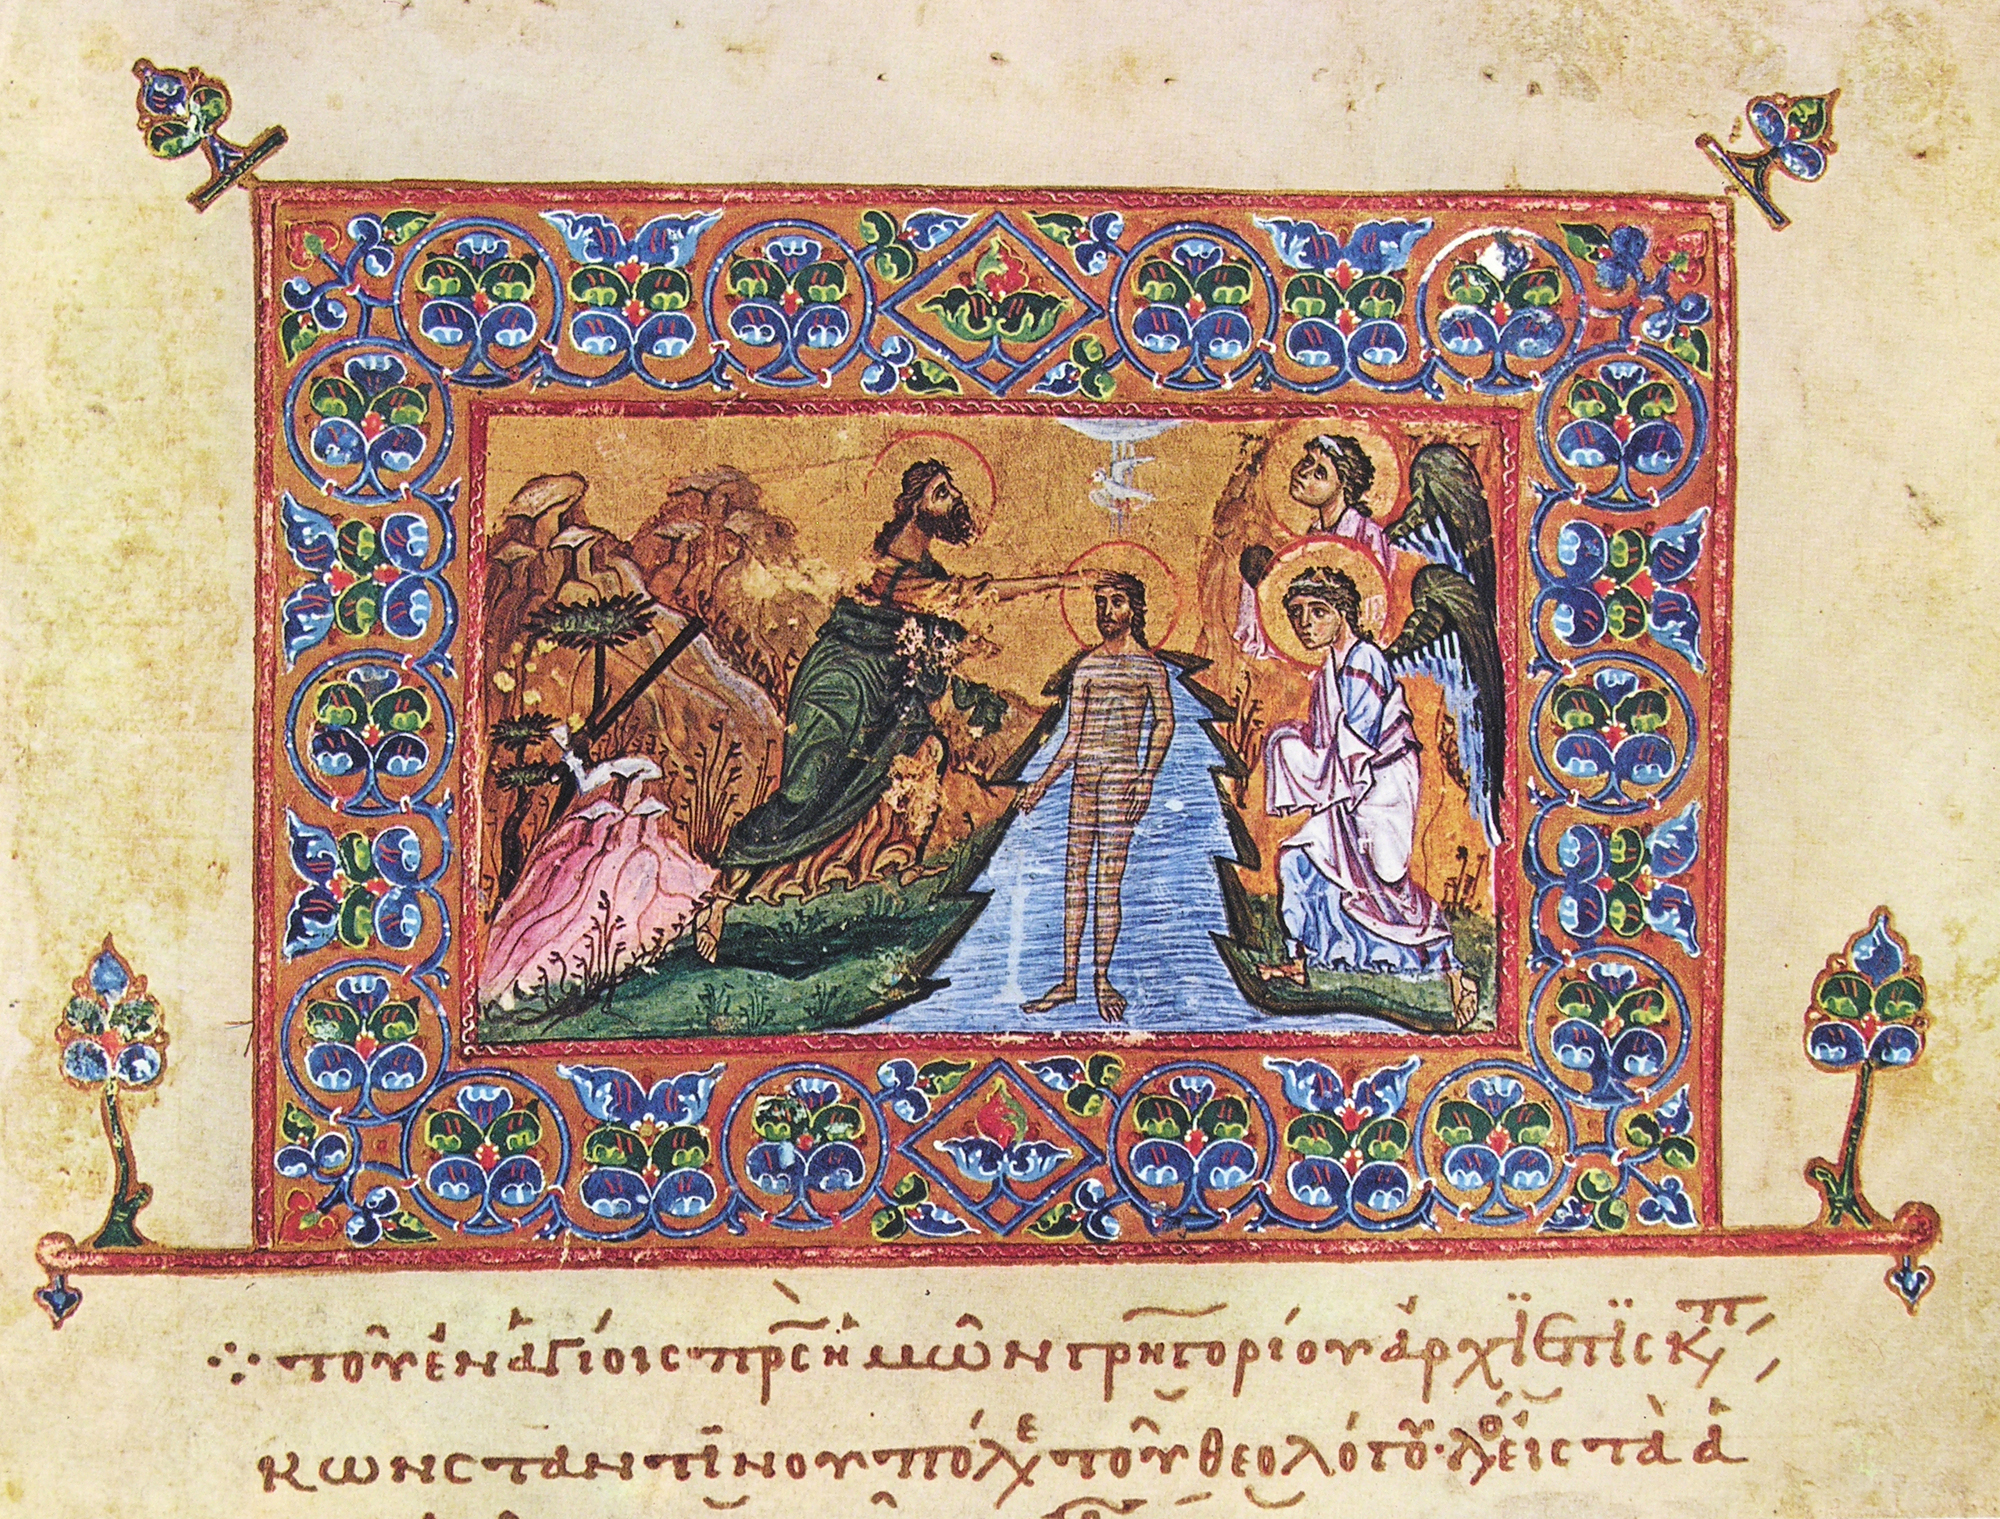 τοῦ ἐν ἁγίοις πρς ἡμῶν γρηγορίου ἀρχϊεπϊσκπ
κωνσταντϊνουπόλε τοῦ θεολόγου· λο εἰς τὰ ἅ